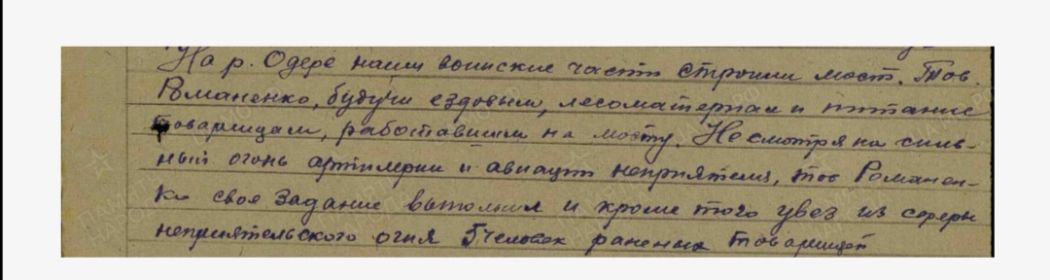 На р. Одере наши воинские части строили мост. Тов.
Романенко, будучи ездовым, лесоматериал и питание
товарищам, работавшим на мосту. Несмотря на силь-
ный огонь артиллерии и авиации неприятеля, тов Романен-
ко свое задание выполнил и кроме того увез из сферы
неприятельского огня 5 человек раненых товарищей